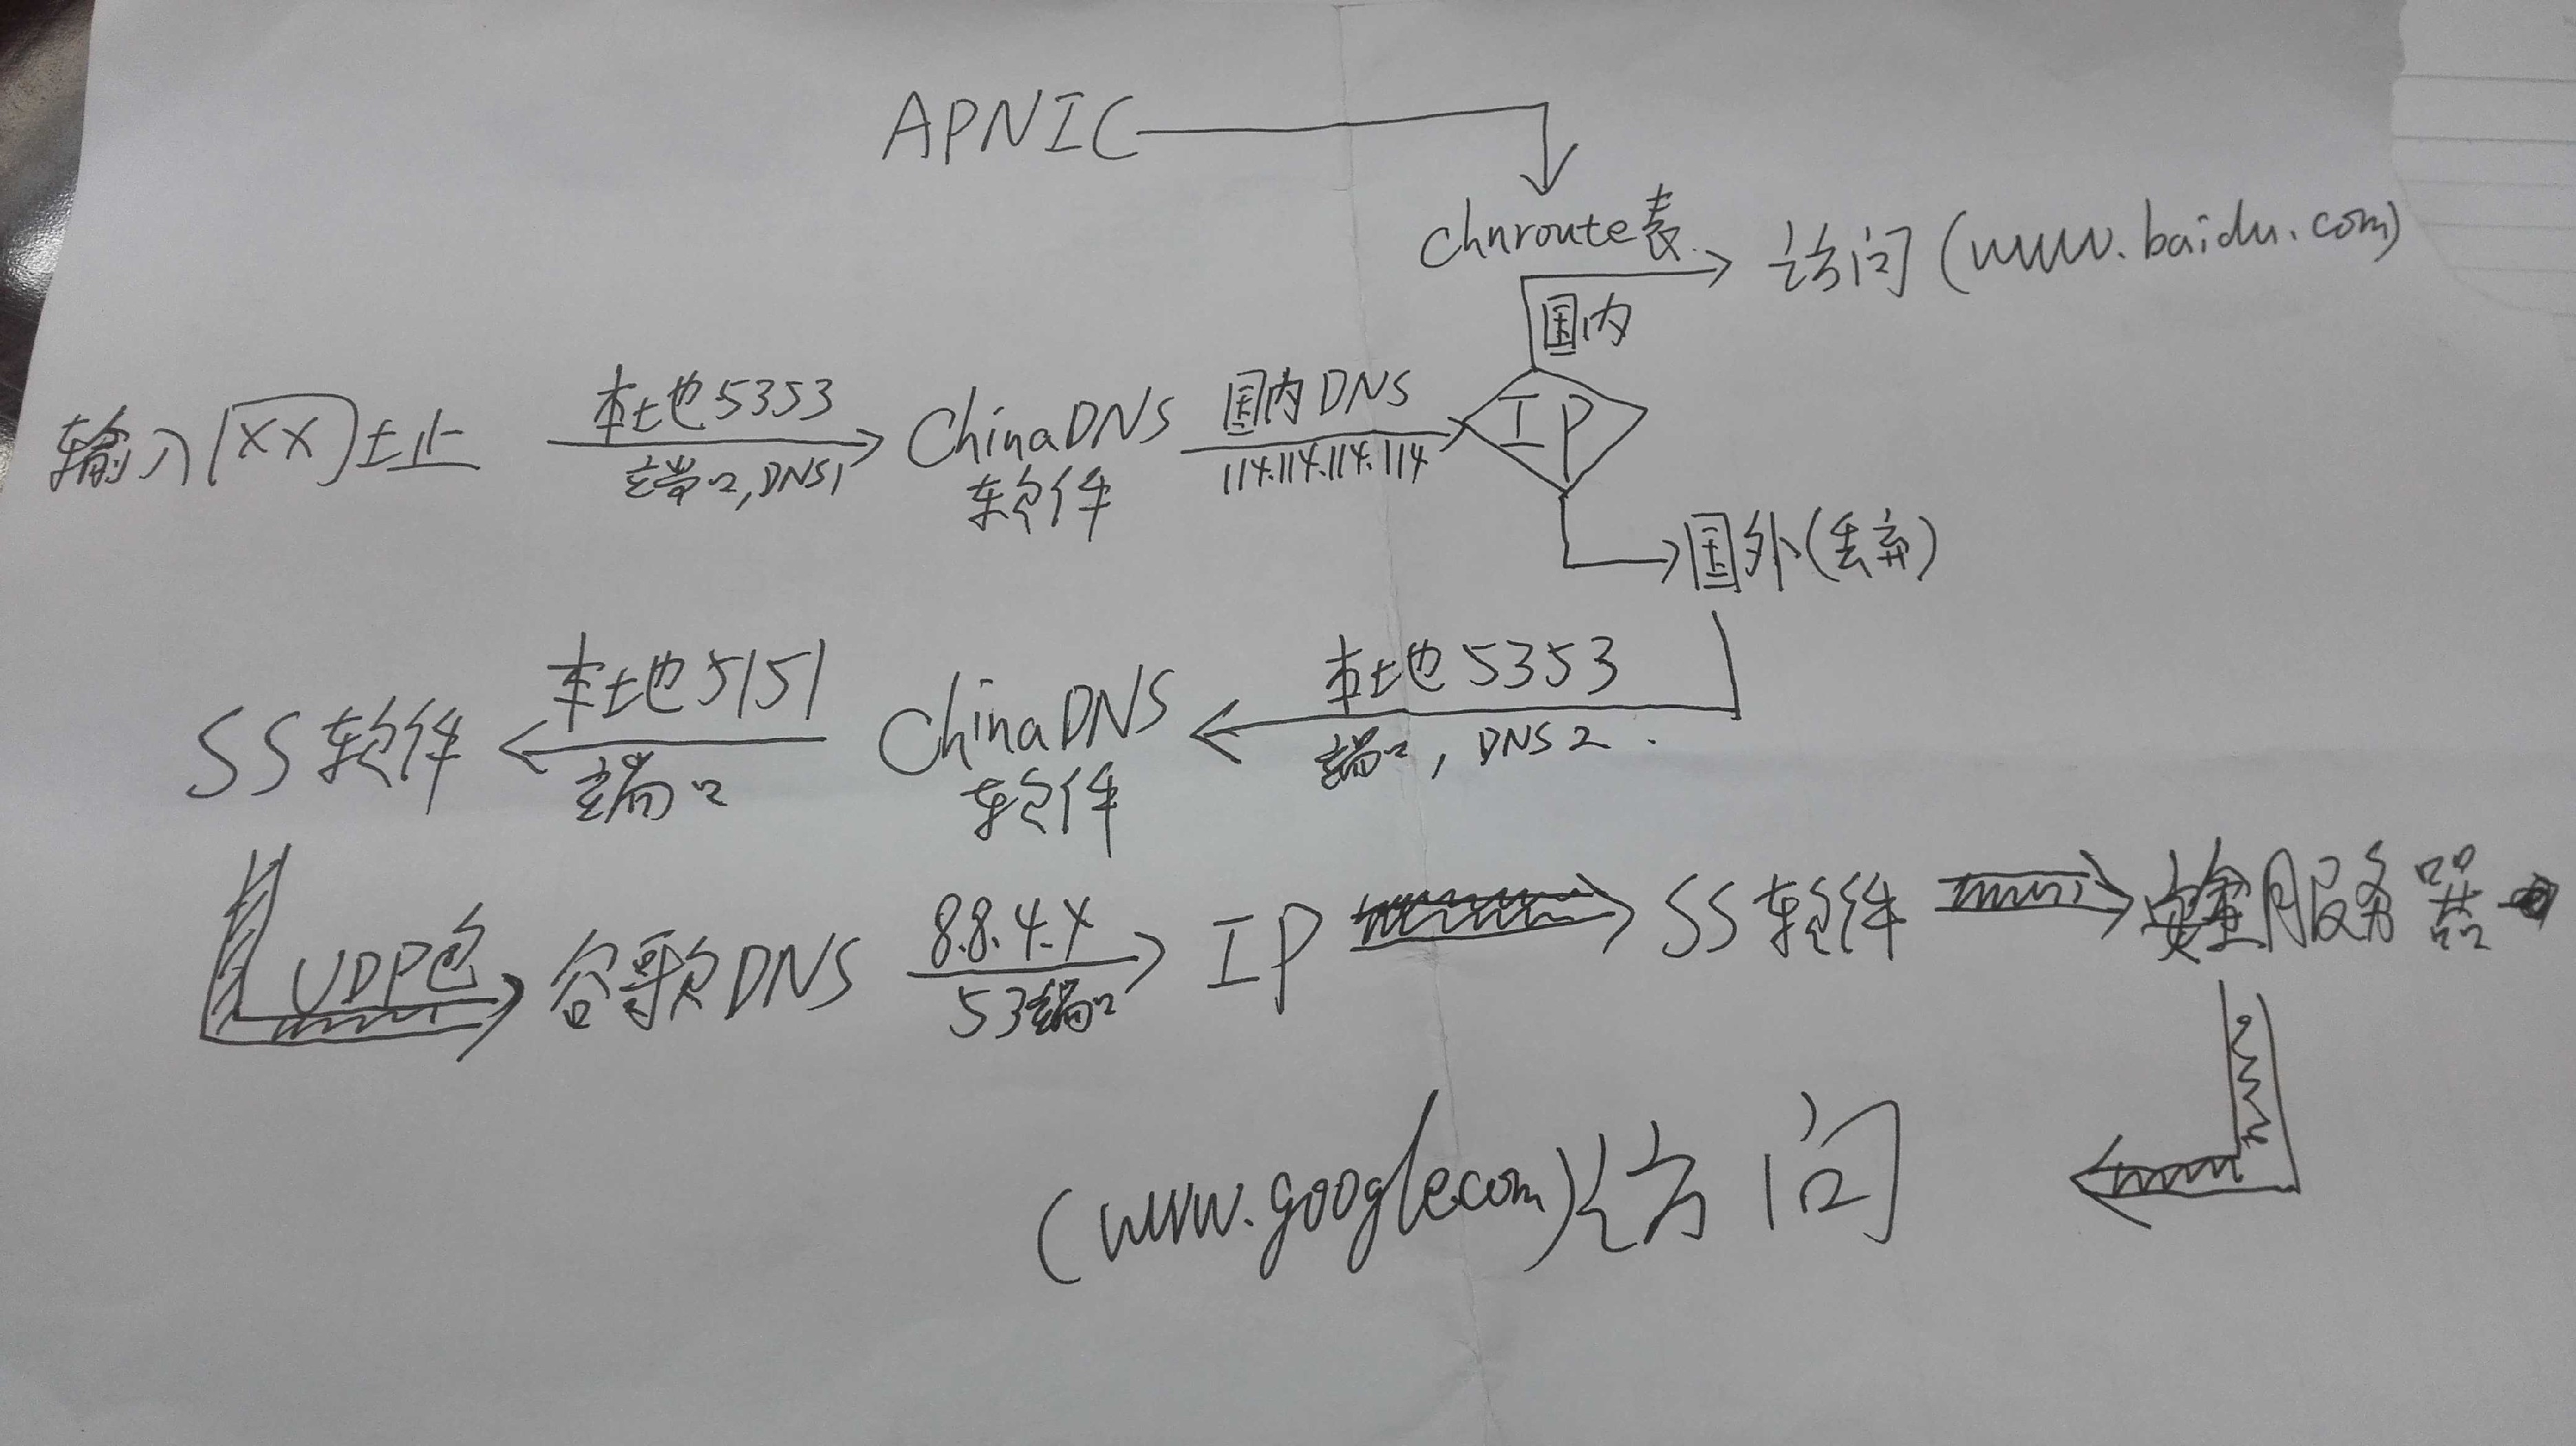 APNIC
chnroute表
访问(www.baidu.com)
国内
输入网址
本地5353
端口,DNS1
ChinaDNS
软件
国内DNS
114.114.114.114
IP
国外(丢弃)
本地5353
端口,DNS2
ChinaDNS
软件
本地5151
端口
SS软件
UDP包
谷歌DNS
8.8.4.4
53端口
IP
SS软件
服务器
(www.google.com)访问